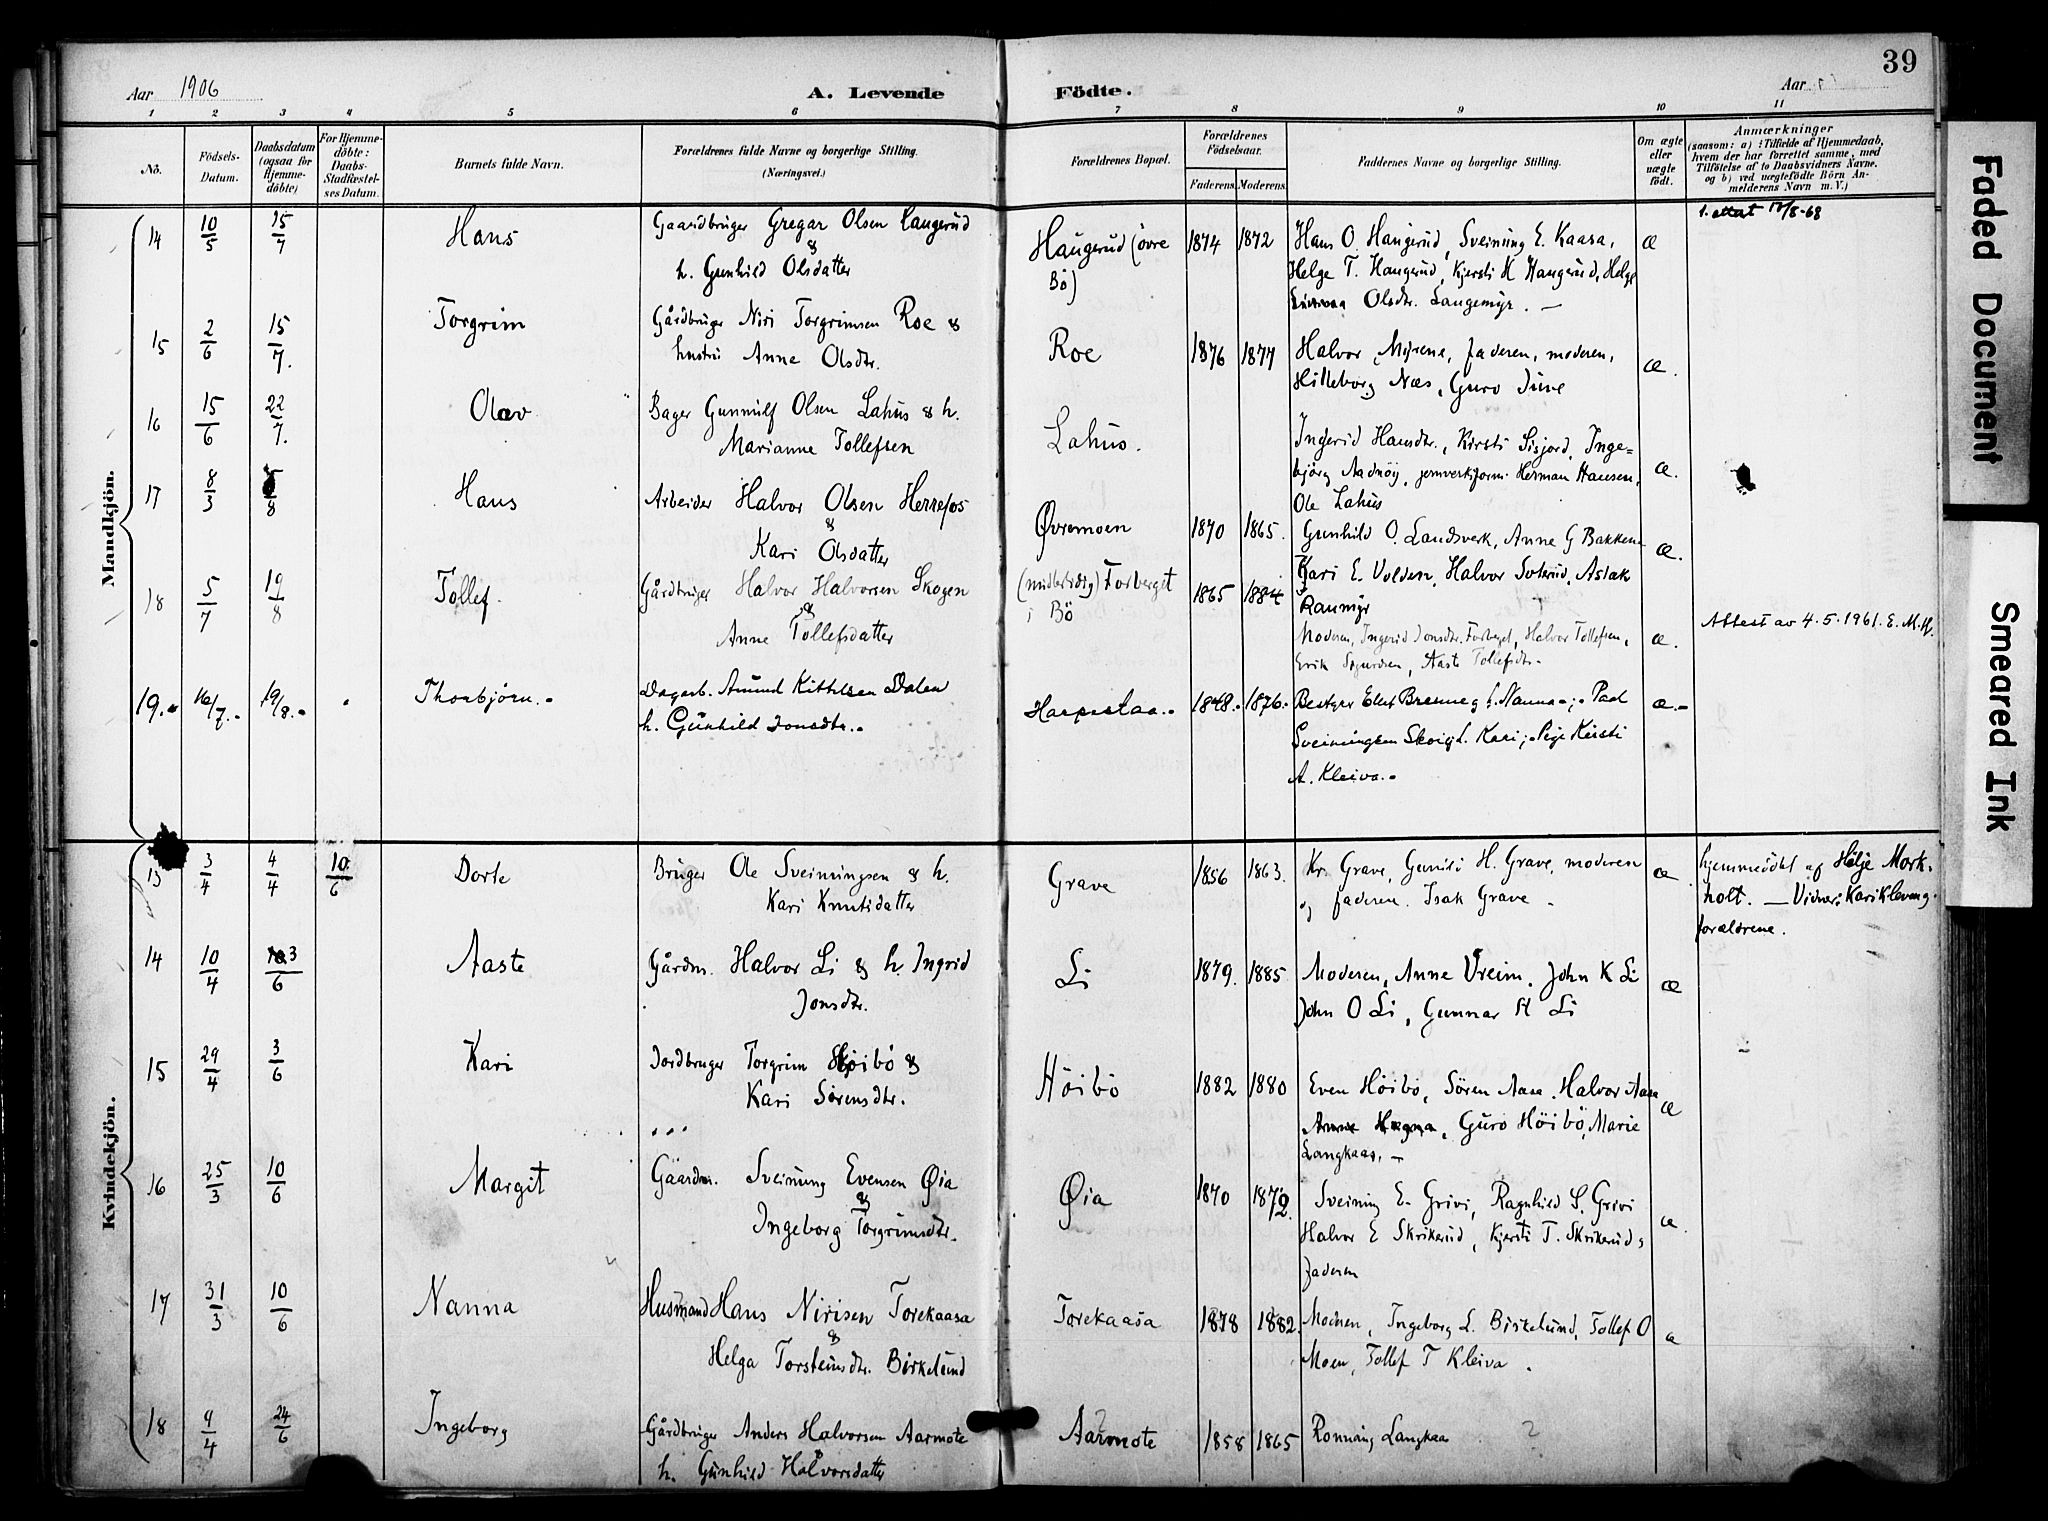 39
Aar 1906
A. Levende Födte.
Aar
1 2 3 4 5 6 7 8 9 10 11
No.
Födsels-Datum.
Daabsdatum (ogsaa for Hjemme-döbte)
For Hjemme-döbte: Daabs-Stadfæstel-ses Datum.
Barnets fulde Navn.
Forældrenes fulde Navne og borgerlige Stilling.
(Næringsvei.)
Forældrenes Bopæl.
Forældrenes Födselsaar.
Faderens. Moderens.
Faddernes Navne og borgerlige Stilling.
Om ægte eller uægte födt.
Anmærkninger
(saasom: a) i Tilfælde af Hjemmedaab,
hvem der har forrettet samme, med
Tilföielse af to Daabsvidners Navne.
og b) ved uægtefödte Börn An-
melderens Navn m. V.)
Mandkjön.
14 10/5 15/7 Hans Gaardbruger Gregar Olsen Haugerud & h. Gunhild Olsdatter Haugerud (øvre Bö) 1874 1872 Hans O. Haugerud, Sveinung E. Kaasa,
Helge T. Haugerud, Kjersti H Haugerud, Helge
Olsdtr. Langemyr. — æ
1. attest 17/8-68
15 2/6 15/7. Torgrim Gårdbruger Niri Torgrimsen Roe & hustru Anne Olsdtr. Roe 1876 1877 Halvor Myrene, faderen, moderen,
Hilleborg Næs, Guro æ.
16 15/6 22/7. Olav Bager Gunnulf Olsen Lahus & h.
Marianne Tollefsen Lahus.
Ingerid Hansdtr., Kirsti Sisjord, Inge-
bjørg Aadnöy, Herman Hansen,
Ole Lahus æ.
17 8/3 5/8 Hans Arbeider Halvor Olsen Herrefos
&
Kari Olsdatter Øvremoen 1870 1865. Gunhild O. Landsverk, Anne G Bakken
Kari E. Volden, Halvor Soterud, Aslak
Raumyr æ.
18 5/7 19/8 Tollef. Gårdbruger Halvor Halvorsen Skogen
&
Anne Tollefsdatter (midlertidig) Forberget i Bö 1865 1884 Moderen, Ingerid Jonsdtr. Forberget, Halvor Tollefsen,
Erik Sigurdsen, Aaste Tollefsdtr. æ.
Attest av 4.5.1961. E. M. H.
19. 16/7. 19/8. Thorbjörn. Dagarb. Amund Kittelsen Dalen
h. Gunhild Jonsdtr. 1848. 1876. Bestyrer Elef Brenne og h. Nanna; Paal
Sveinungsen Skoie h. Kari; Pige Kirsti
A. Kleiva. æ.
Kvindekjön.
13 3/4 4/4 10/6 Dorte Bruger Ole Sveinungsen & h.
Kari Knutsdatter Grave 1856 1863. Kr. Grave, Gunild H. Grave, moderen
og faderen. Isak Grave æ
hjemmedöbt af Helje Mork-
holt. — Vidner: Kari Kleven og
forældrene.
14 10/4 3/6 Aaste Gårdm. Halvor Li & h. Ingrid
Jonsdtr. Li 1879. 1885. Moderen, Anne Vreim. John K Li
John O Li, Gunnar H Li æ
15 29/4 3/6 Kari Jordbruger Torgrim Höibö &
Kari Sörensdtr. Höibö 1882 1880 Even Höibö, Sören Aasa, Halvor Aasa
Anne Hegna, Guro Höibö, Marie
Langkaas. — æ
16 25/3 10/6 Margit Gaardm. Sveinung Evensen Øia
&
Ingeborg Torgrimsdtr. Øia 1870 1872. Sveining E. Grivi, Ragnhild S. Grivi
Halvor E Skrikerud, Kjersti T. Skrikerud,
Faderen æ
17 31/3 10/6 Nanna Husmand Hans Nirisen Torekaasa
&
Helga Torsteinsdtr. Birkelund Torekaasa 1878 1882. Moderen, Ingeborg L. Birkelund, Tollef O
Moen, Tollef T Kleiva. æ
18 9/4 24/6 Ingeborg Gårdbruger Anders Halvorsen Aarmote
&
h. Gunhild Halvorsdatter Aarmote 1858 1865 Rönnaug Langkaas
Faded Document
Smeared Ink